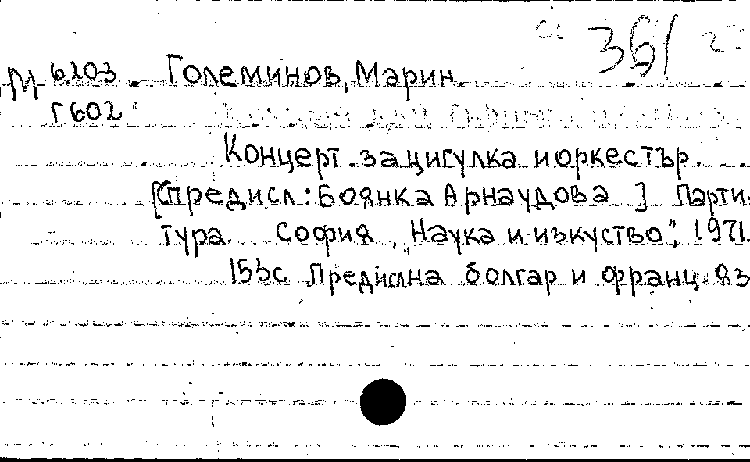 361
М 6203 Големинов, Марин
Г602
Концерт за цигулка и оркестър.
[Предисл: Боянка Арнаудова] Парти-
тура София, Наука и изкуство", 1971.
153с Предисл на болгар и франц яз